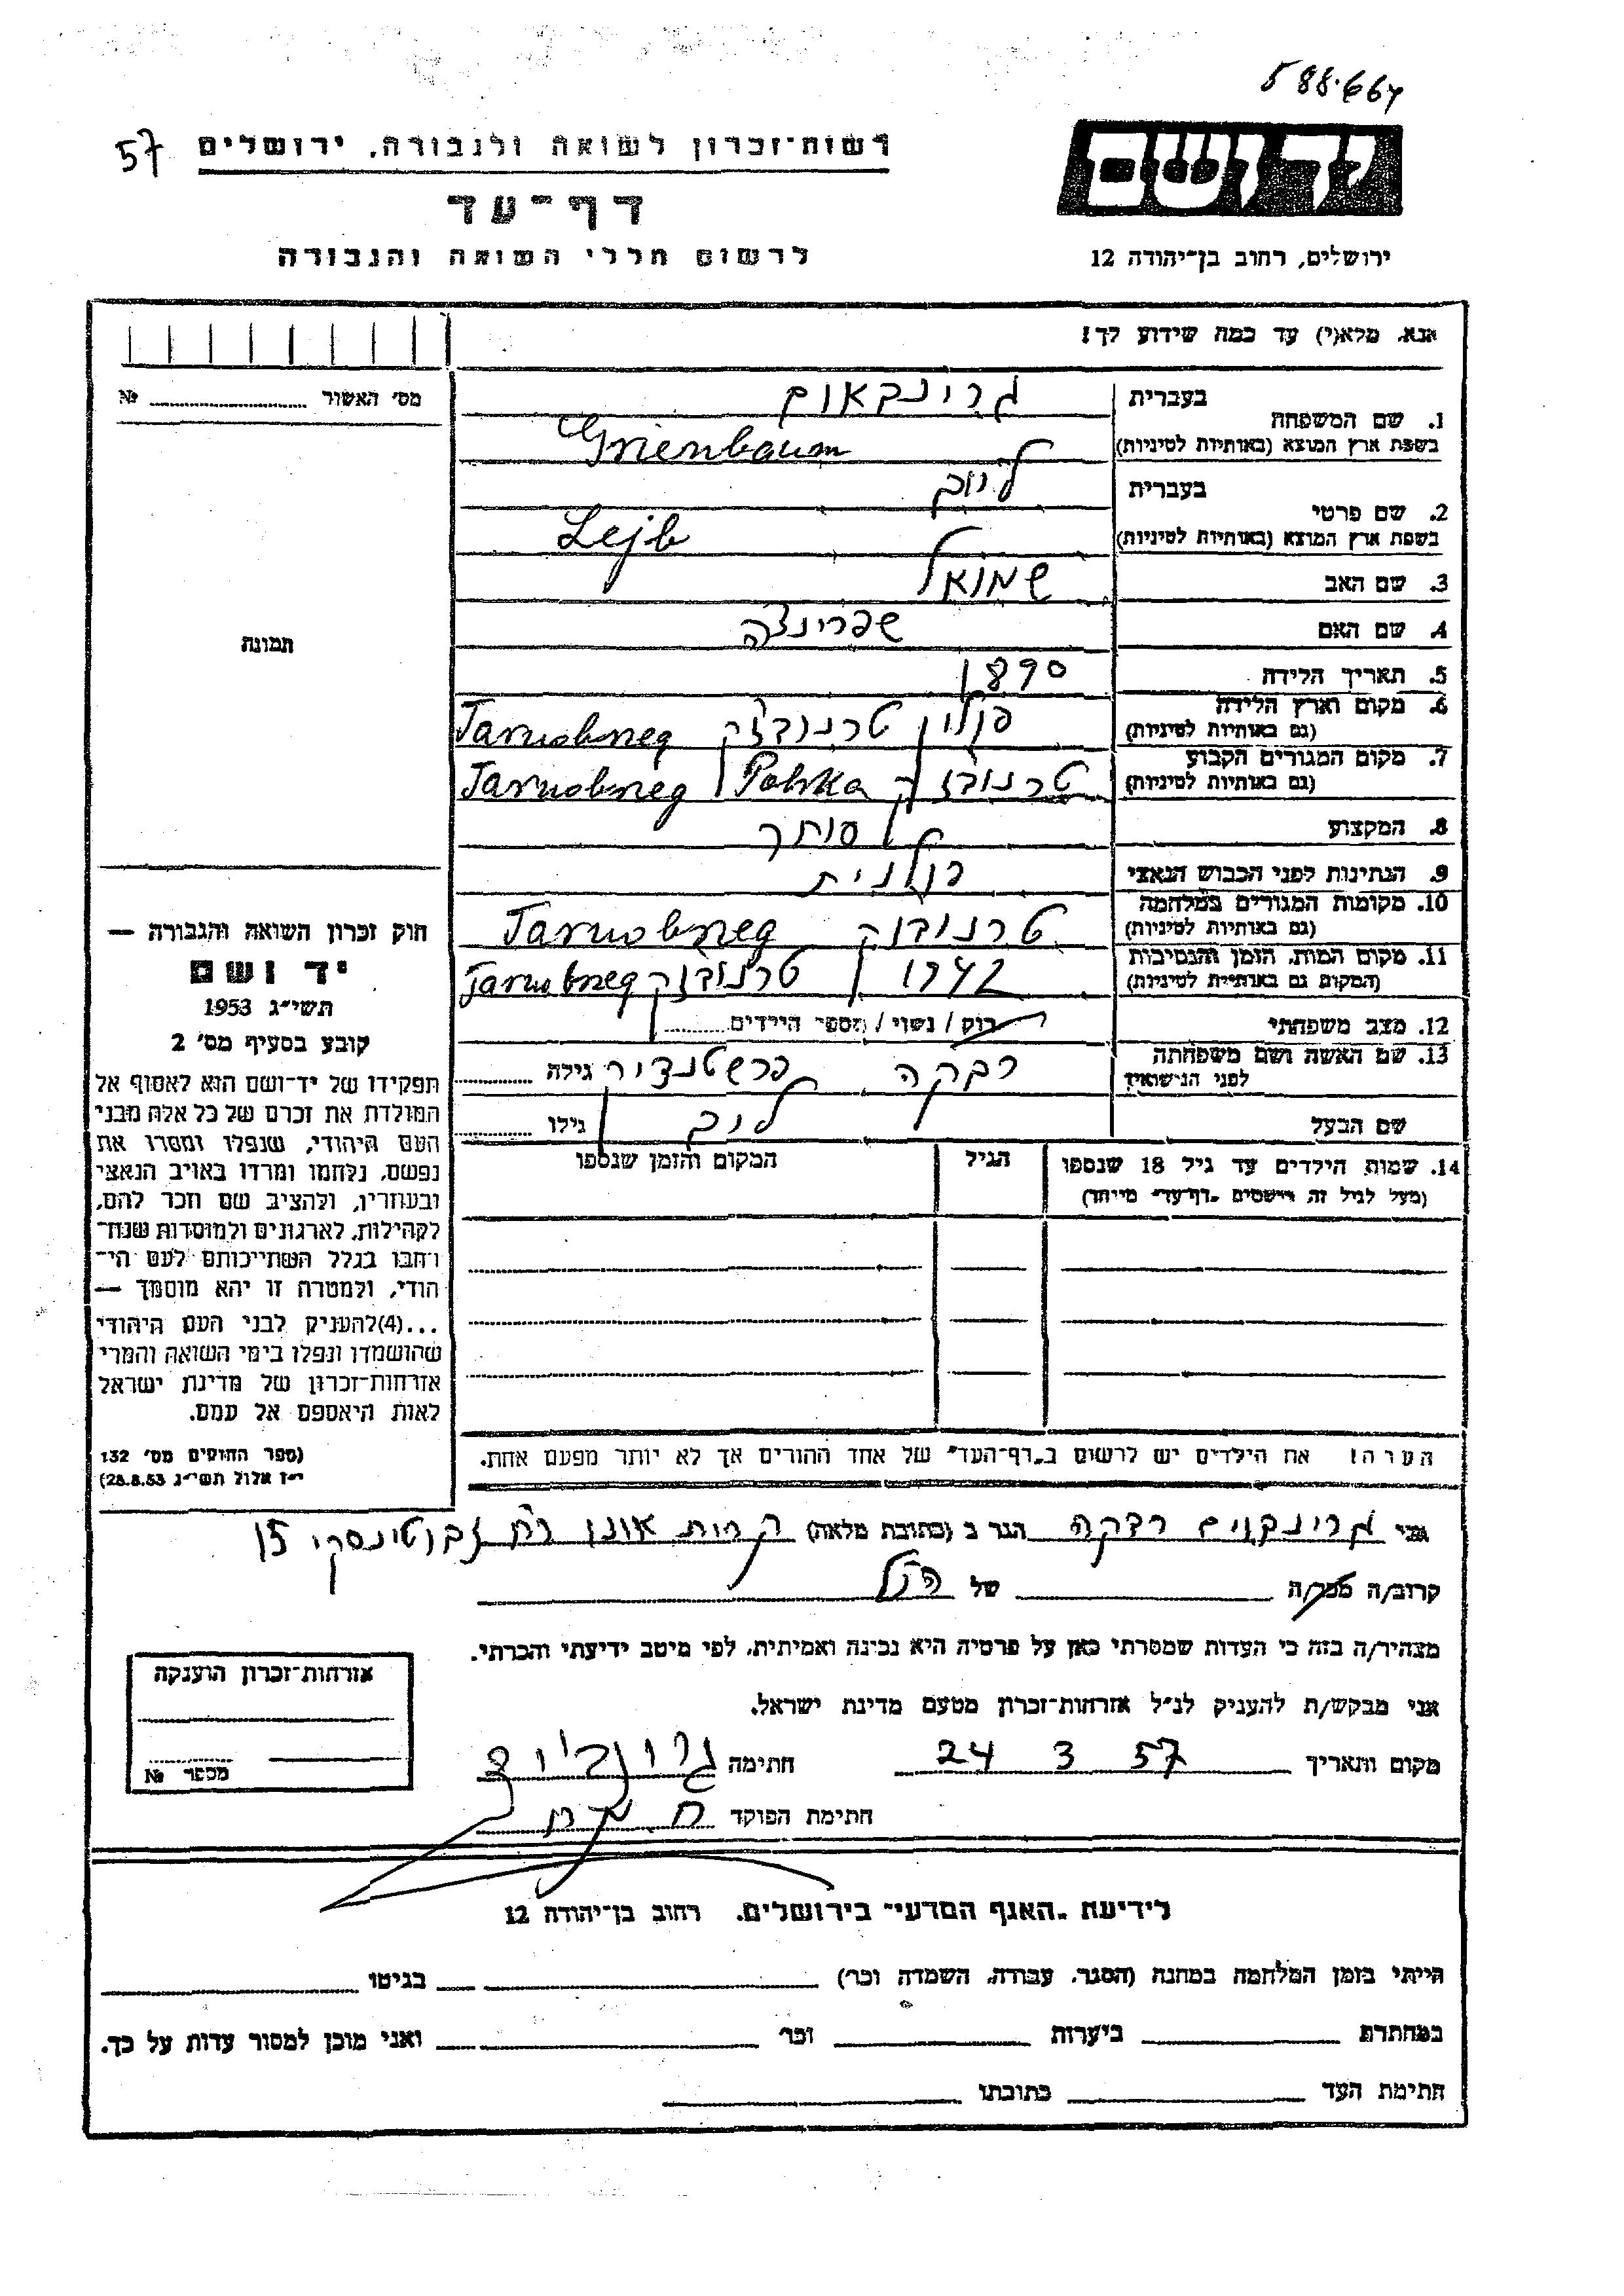 588.664
57
רשות־זכרון לשואה ולגבורה, ירושלים
יד ושם
דף־עד
לרשום חללי השואה והגבורה
ירושלים, רחוב בן־יהודה 12
אנא, מלא(י) עד כמה שידוע לך!
מס׳ האשור №
תמונה
1. שם המשפחה
בעברית גרינבאום
בשפת ארץ המוצא (באותיות לטיניות) Grienbaum
2. שם פרטי
בעברית לייב
בשפת ארץ המוצא (באותיות לטיניות) Lejb
3. שם האב שמואל
4. שם האם שפרינצה
5. תאריך הלידה 1890
6. מקום וארץ הלידה (גם באותיות לטיניות) פולין טרנובזק Tarnobneg
7. מקום המגורים הקבוע (גם באותיות לטיניות) טרנובזק Polska Tarnobneg
8. המקצוע סוחר
9. הנתינות לפני הכבוש הנאצי פולנית
10. מקומות המגורים במלחמה (גם באותיות לטיניות) טרנובזק Tarnobneg
11. מקום המות, הזמן והנסיבות (המקום גם באותיות לטיניות) 1942 טרנובזק Tarnobneg
12. מצב משפחתי רוק / נשוי / מספר הילדים
13. שם האשה ושם משפחתה לפני הנישואין רבקה גילה
שם הבעל לייב גילו
14. שמות הילדים עד גיל 18 שנספו
(מעל לגיל זה רושמים ״דף־עד״ מיוחד)
הגיל
המקום והזמן שנספו
הערה: את הילדים יש לרשום ב״דף־העד״ של אחד ההורים אך לא יותר מפעם אחת.
חוק זכרון השואה והגבורה —
יד ושם
תשי״ג 1953
קובע בסעיף מס׳ 2
תפקידו של יד־ושם הוא לאסוף אל
המולדת את זכרם של כל אלה מבני
העם היהודי, שנפלו ומסרו את
נפשם, נלחמו ומרדו באויב הנאצי
ובעוזריו, ולהציב שם וזכר להם,
לקהילות, לארגונים ולמוסדות שנח־
רבו בגלל השתייכותם לעם הי־
הודי, ולמטרה זו יהא מוסמך —
...(4)להעניק לבני העם היהודי
שהושמדו ונפלו בימי השואה והמרי
אזרחות־זכרון של מדינת ישראל
לאות היאספם אל עמם.
(ספר החוקים מס׳ 132
י״ז אלול תשי״ג 28.8.53)
אני גרינבוים רבקה הגר ב (כתובת מלאה) קרית אונו רח זבוטינסקי 15
קרוב/ה מכר/ה של הנ״ל
מצהיר/ה בזה כי העדות שמסרתי כאן על פרטיה היא נכונה ואמיתית, לפי מיטב ידיעתי והכרתי.
אני מבקש/ת להעניק לנ״ל אזרחות־זכרון מטעם מדינת ישראל.
מקום ותאריך 24 3 57 חתימה
חתימת הפוקד
אזרחות־זכרון הוענקה
מספר №
לידיעת ״האגף המדעי״ בירושלים, רחוב בן־יהודה 12
הייתי בזמן המלחמה במחנה (הסגר, עבודה, השמדה וכו׳) בגיטו
במחתרת ביערות וכו׳ ואני מוכן למסור עדות על כך.
חתימת העד כתובתו